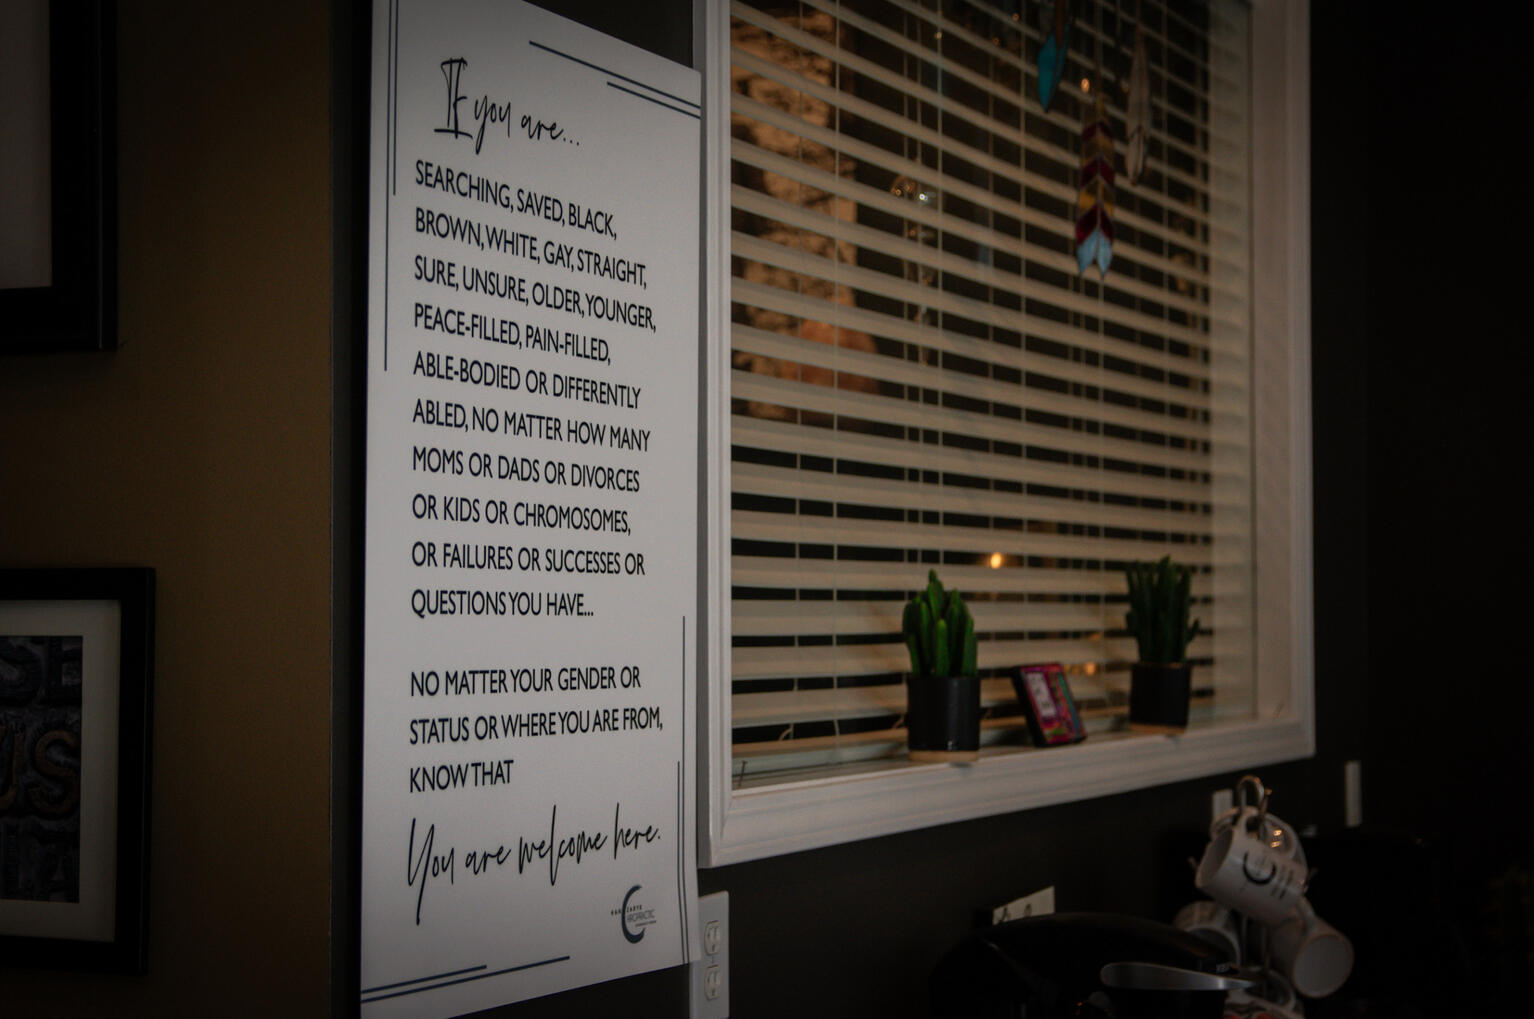 If you are...
SEARCHING, SAVED, BLACK,
BROWN, WHITE, GAY, STRAIGHT,
SURE, UNSURE, OLDER, YOUNGER,
PEACE-FILLED, PAIN-FILLED,
ABLE-BODIED OR DIFFERENTLY
ABLED, NO MATTER HOW MANY
MOMS OR DADS OR DIVORCES
OR KIDS OR CHROMOSOMES,
OR FAILURES OR SUCCESSES OR
QUESTIONS YOU HAVE...
NO MATTER YOUR GENDER OR
STATUS OR WHERE YOU ARE FROM,
KNOW THAT
You are welcome here.